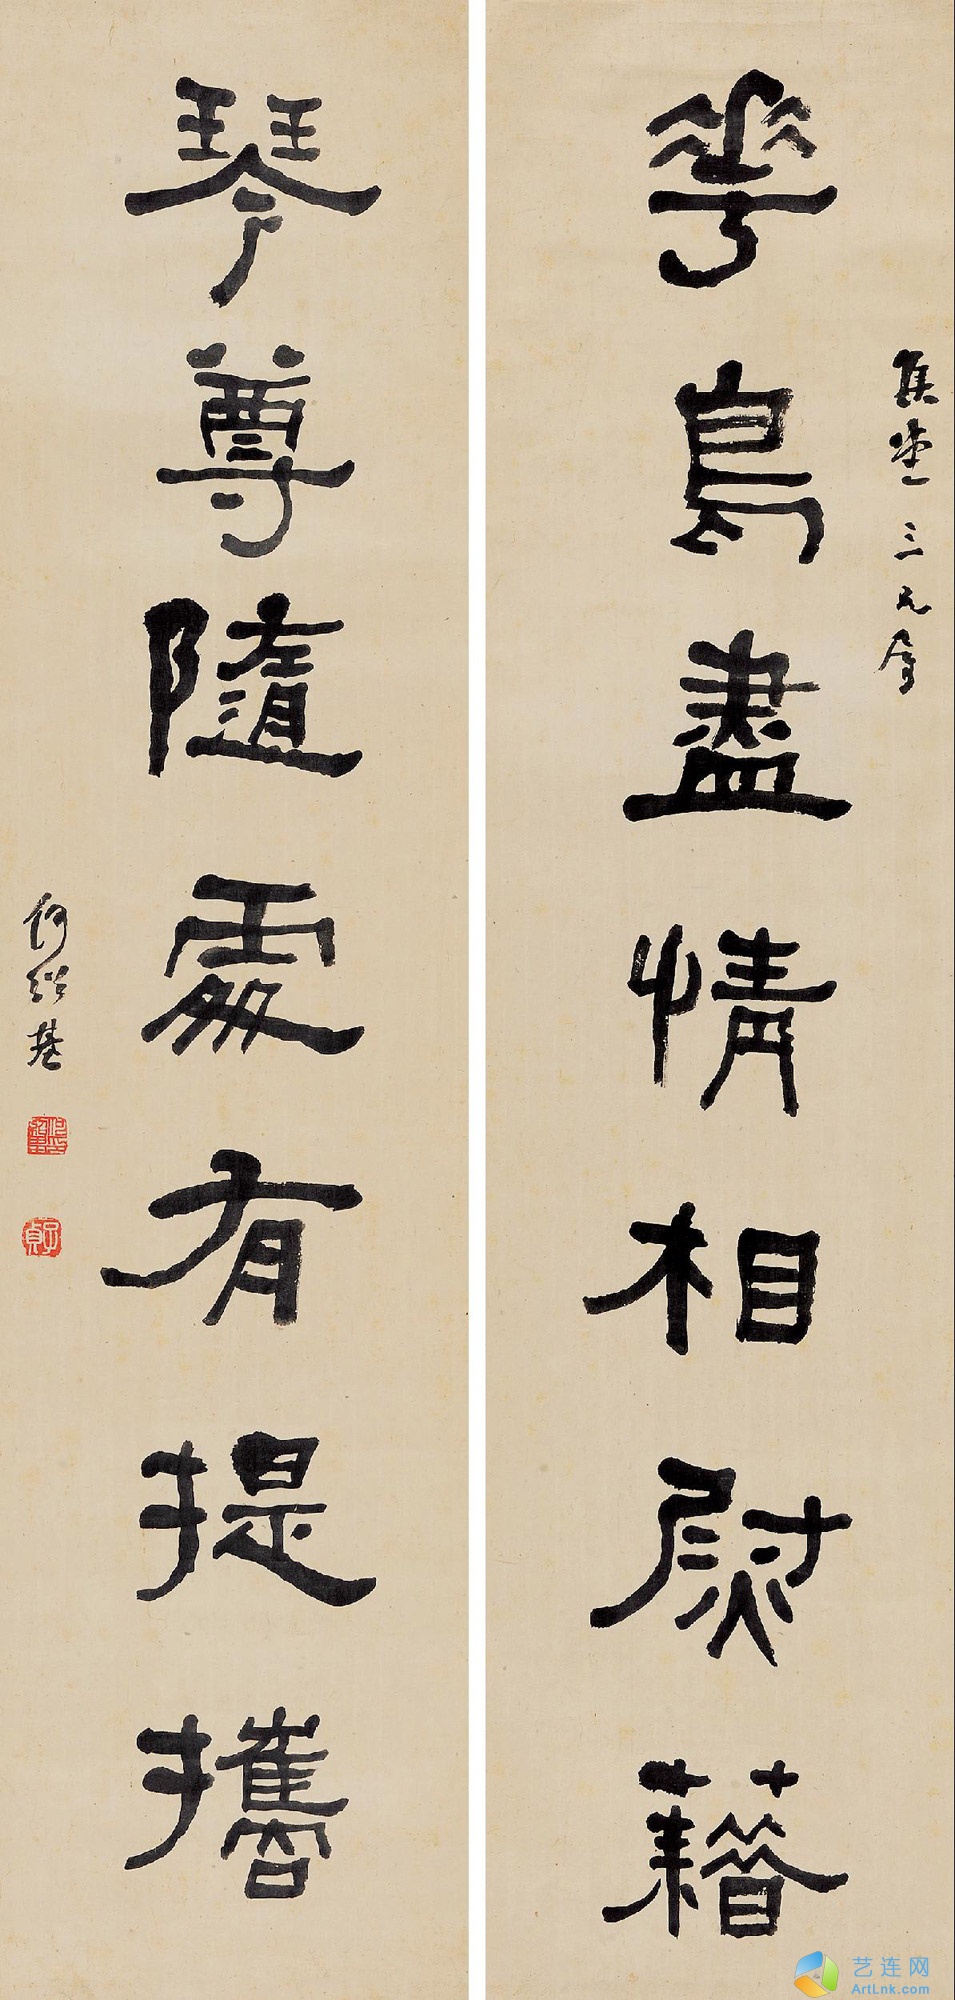 華鳥盡情相慰藉
三兄屬
琴尊隨處有提攜
何紹基
子貞
艺连网
ArtLnk.com